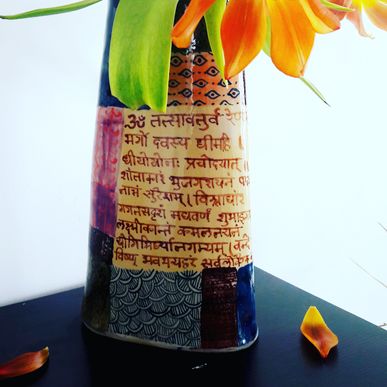 ॐ तत्सवितुर्वरेण
भर्गो देवस्य धीमहि।
धीयोयोनः प्रचोदयात्।
शांताकारं भुजगशयनं
नाभं सुरेशम्। विश्वाधारं
गगनसदृशं मेघवर्णं शुभाङ्ग
लक्ष्मीकान्तं कमलनयनं
योगिभिर्ध्यानगम्यम्। वन्दे
विष्णु भवभयहरं सर्वलोकै